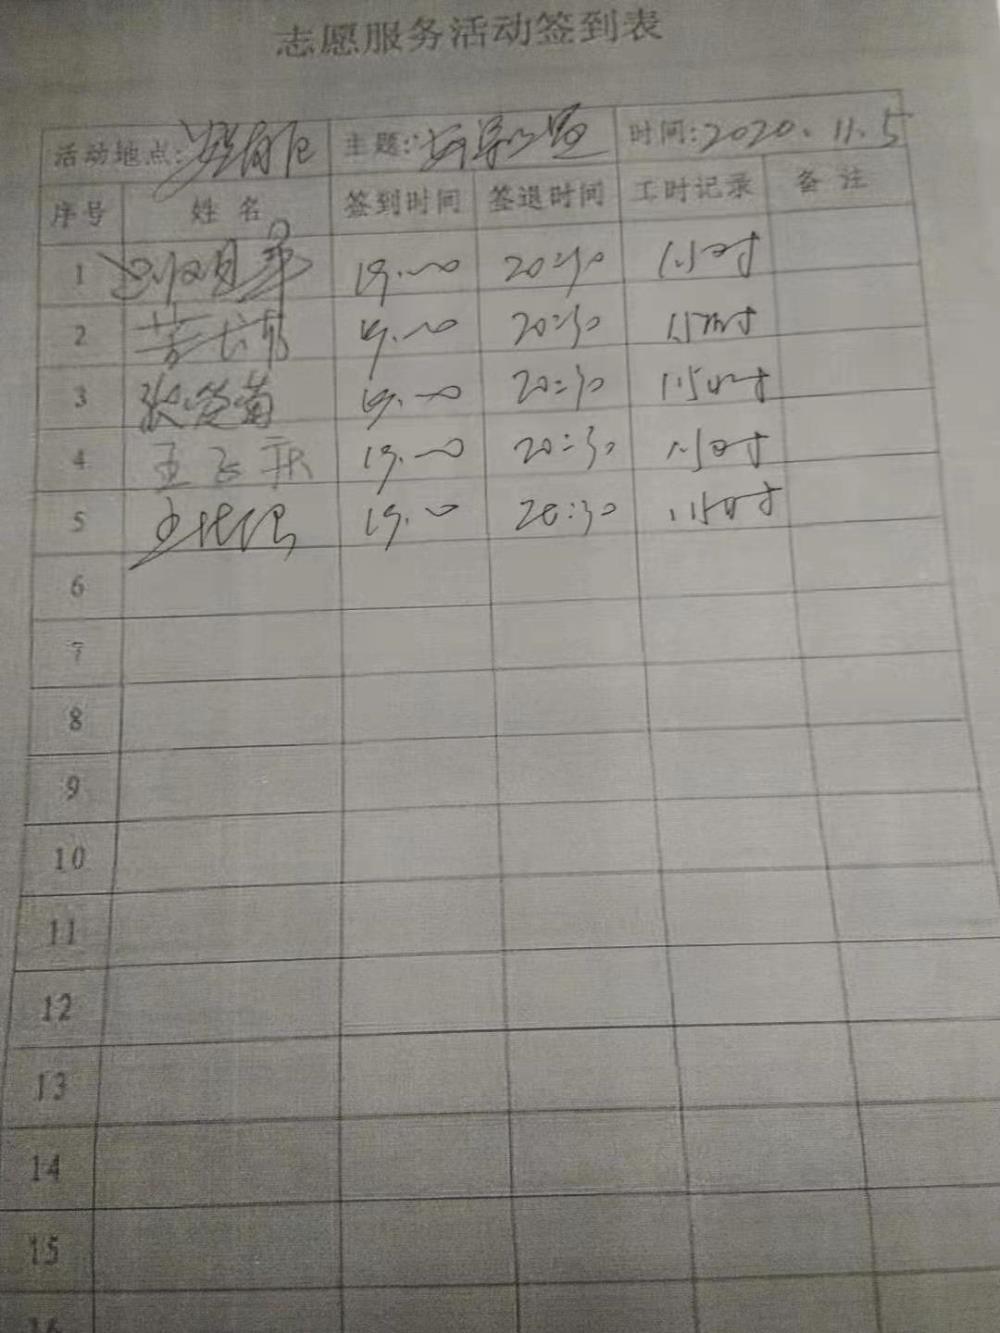 志愿服务活动签到表
活动地点: 主题: 时间:2020.11.5
序号 姓名 签到时间 签退时间 工时记录 备注
1 19:00 20:30 1.5时
2 19:00 20:30 1.5时
3 19:00 20:30 1.5时
4 王飞跃 19:00 20:30 1.5时
5 19:00 20:30 1.5时
6
7
8
9
10
11
12
13
14
15
16